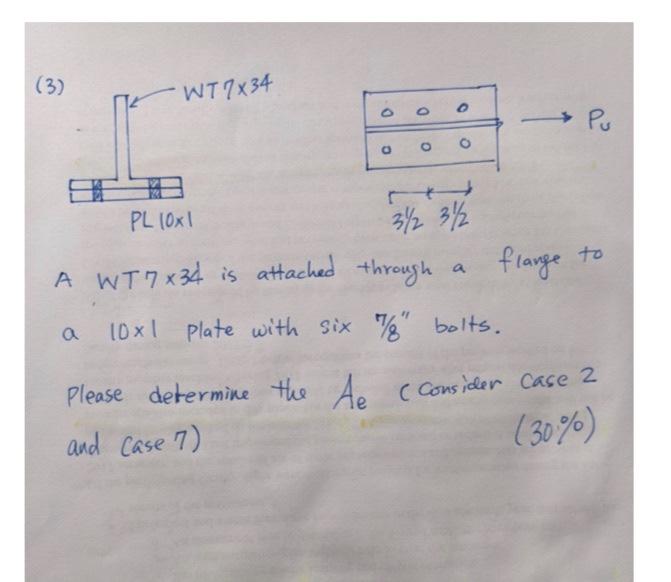 (3)
WT7x34
Pu
PL 10x1
3½ 3½
A WT7x34 is attached through a flange to
a 10x1 plate with six 7/8" bolts.
Please determine the Ae (Consider Case 2
and Case 7)
(30%)